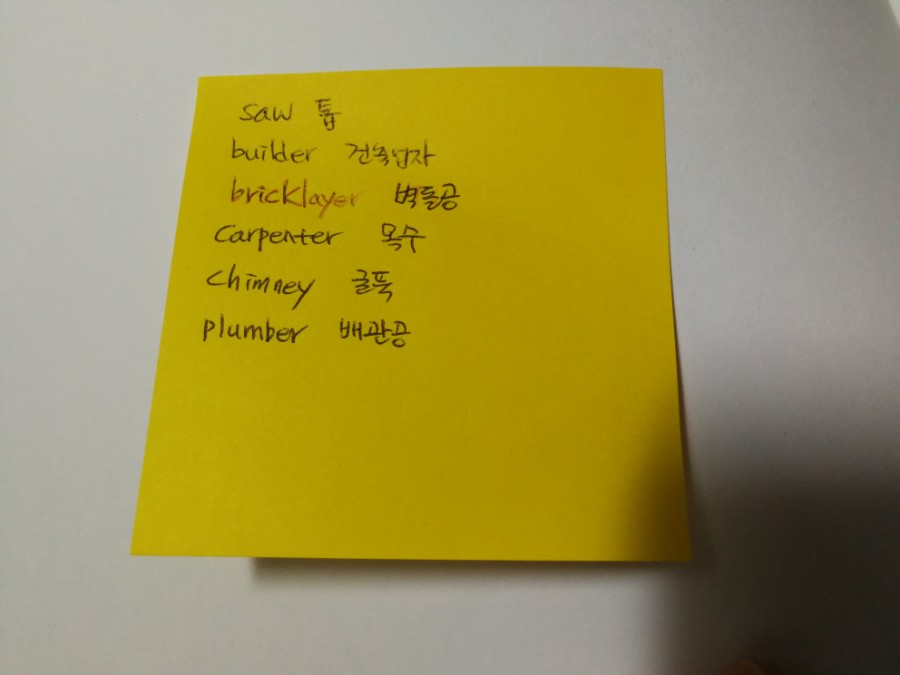 saw 톱
builder 건축업자
bricklayer 벽돌공
carpenter 목수
chimney 굴뚝
plumber 배관공